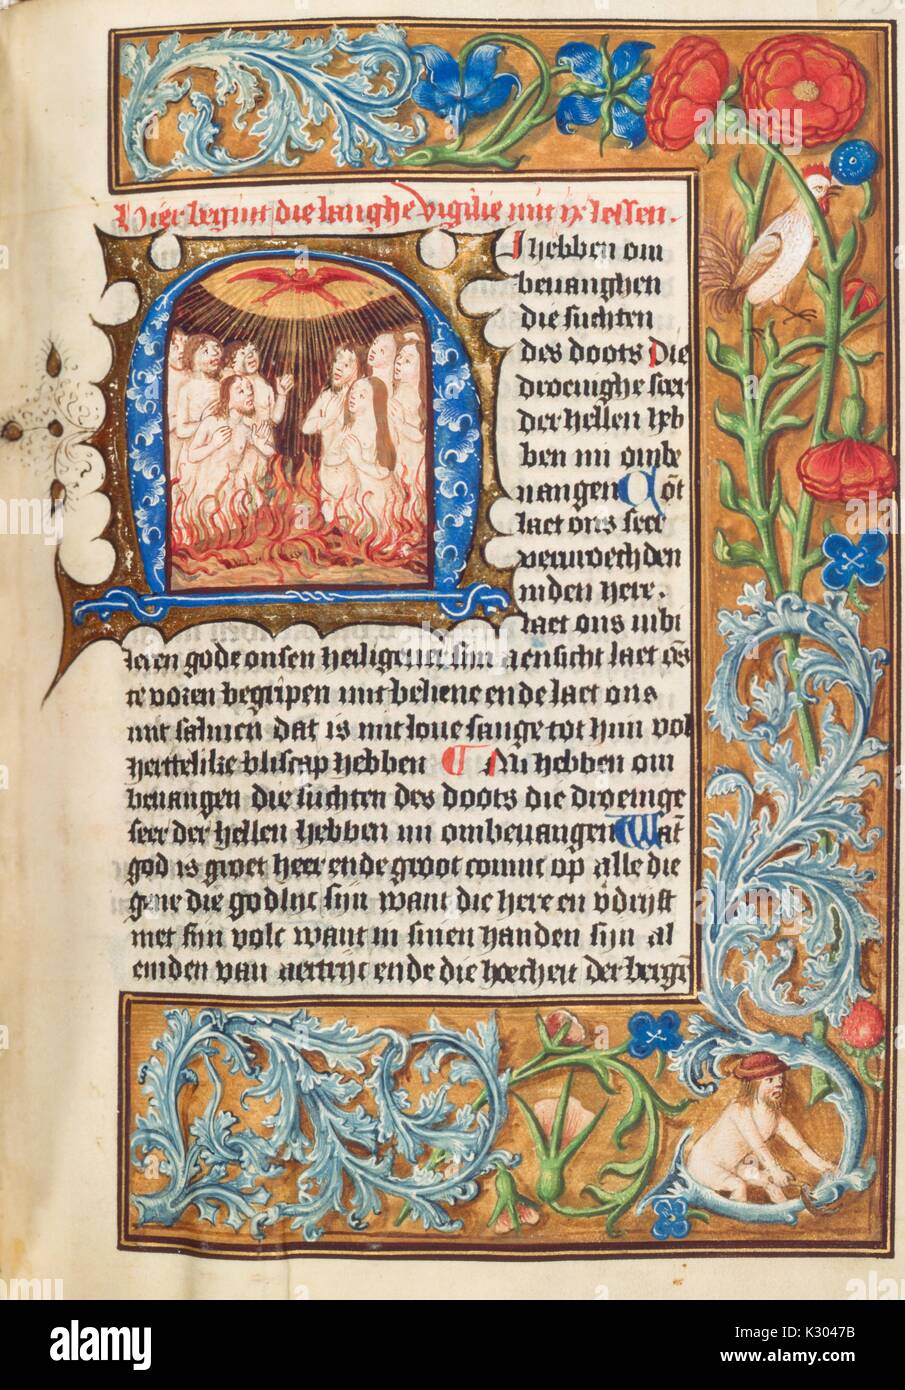 Hier begint die langhe vigilie mit ix lessen.
Mi hebben om
beuanghen
die suchten
des doots Die
droeuighe seer
der hellen heb
ben mi ombe
uangen Cōt
laet ons seer
veruroechden
inden here.
laet ons iubi
leren gode onsen heiligeuer sijn aensicht laet ōs
te voren begripen mit beliene ende laet ons
mit salmen dat is mit loue sange tot him vol
hertelike bliscap hebben Mi hebben om
beuangen die suchten des doots die droeuige
seer der hellen hebben mi ombeuangen Wāt
god is groet heer ende groot coninc op alle die
gene die godlic sijn want die here en vdrijft
niet sijn volc want in sinen handen sijn al
einden van aertrijc ende die hoecheit der bergē
alamy stock photo
a
alamy
K3047B
www.alamy.com